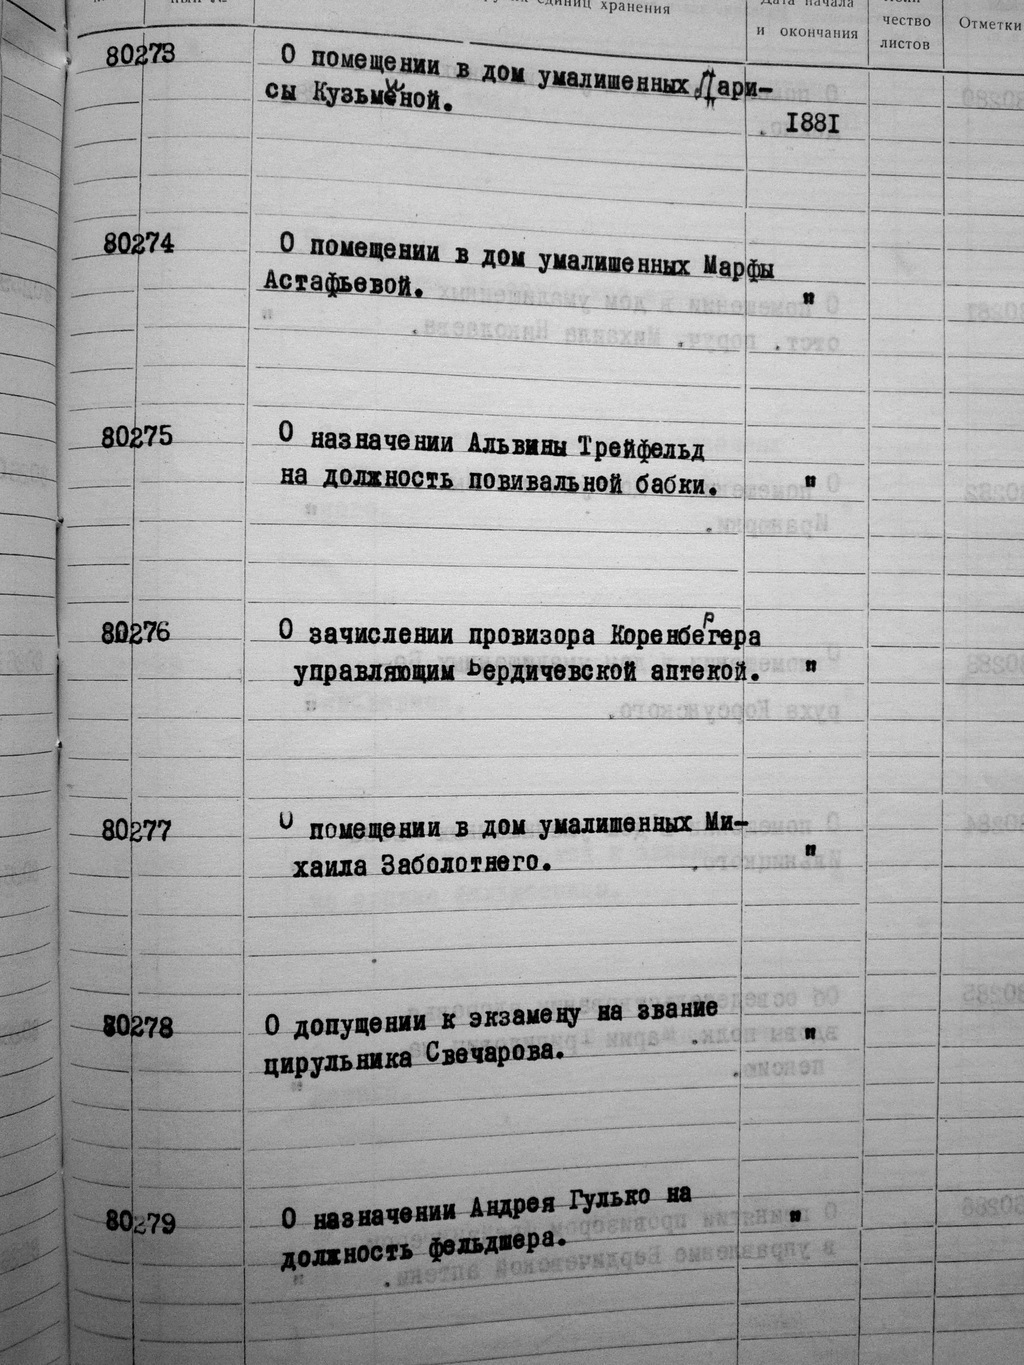 единиц хранения
Дата начала
и окончания
чество
листов
Отметки
80273
О помещении в дом умалишенных Лари-
сы Кузьминой.
1881
80274
О помещении в дом умалишенных Марфы
Астафьевой.
"
80275
О назначении Альвины Трейфельд
на должность повивальной бабки.
"
80276
О зачислении провизора Коренбергера
управляющим Бердичевской аптекой.
"
80277
О помещении в дом умалишенных Ми-
хаила Заболотнего.
"
80278
О допущении к экзамену на звание
цирульника Свечарова.
"
80279
О назначении Андрея Гулько на
должность фельдшера.
"